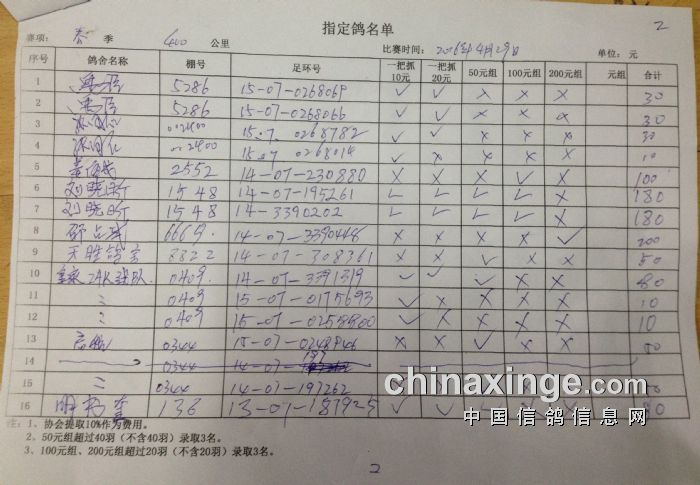 指定鸽名单 2
赛项： 春 季 400 公里 比赛时间：2016年4月29日 单位：元
序号 鸽舍名称 棚号 足环号 一把抓10元 一把抓20元 50元组 100元组 200元组 元组 合计
1 5286 15-07-0268069 ✓ ✓ × × × 30
2 5286 15-07-0268066 ✓ ✓ × × × 30
3 002400 15.7. 0268782 ✓ ✓ × × × 30
4 002400 15.07 0268014 ✓ × × × × 10
5 2552 14-07-230880 × × × ✓ × 100
6 刘晓昕 1548 14-07-195261 ✓ ✓ ✓ ✓ × 180
7 刘晓昕 1548 14-3390202 ✓ ✓ ✓ ✓ × 180
8 6669. 14-07-3390448 × × × × ✓ 200
9 天胜鸽舍 8822 14-07-308361 × × ✓ × × 50
10 24K战队 0409. 14-07-3391319 ✓ ✓ ✓ × × 80
11 〃 0409 15-07-0175693 ✓ × × × × 10
12 〃 0409 15-07-0258800 ✓ × × × × 10
13 0344 15-07- × × ✓ × × 50
14 0344 14-07-
15 〃 0344 14-07-197262
16 136 13-07-187925 ✓ ✓
chinaxinge.com
中国信鸽信息网
注：1、协会提取10%作为费用。
2、50元组超过40羽（不含40羽）录取3名。
3、100元组、200元组超过20羽（不含20羽）录取3名。
2